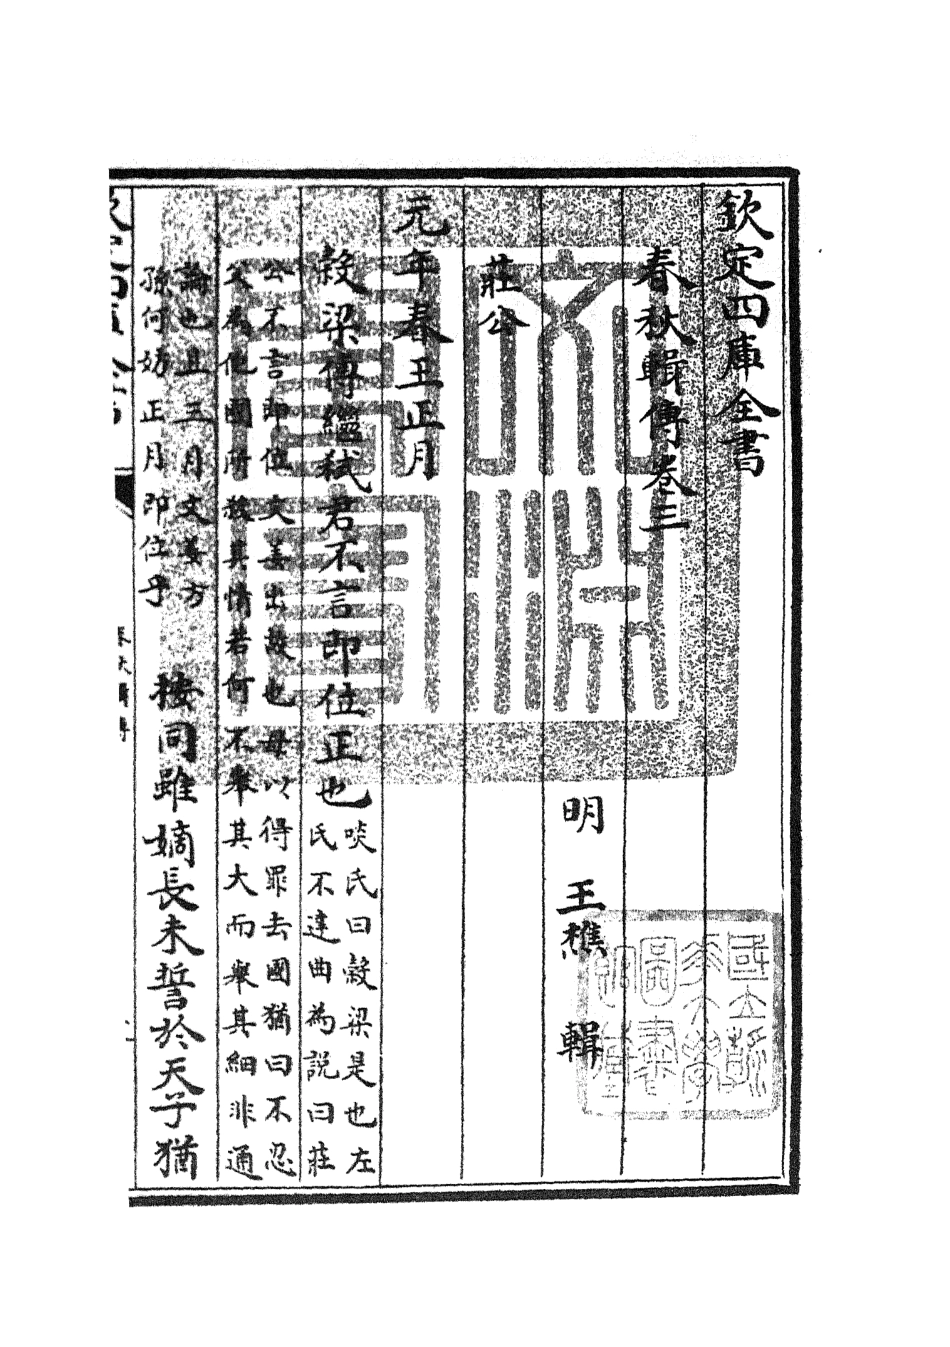 欽定四庫全書
春秋輯傳卷三
明 王樵 輯
莊公
元年春王正月
穀梁傳繼弒君不言即位正也
啖氏曰穀梁是也左
氏不達曲為說曰莊
公不言即位文姜出故也母以得罪去國猶曰不忍
父為他國所殺其情若何不舉其大而舉其細非通
論也且三月文姜方
孫何妨正月即位乎
按同雖嫡長未誓於天子猶